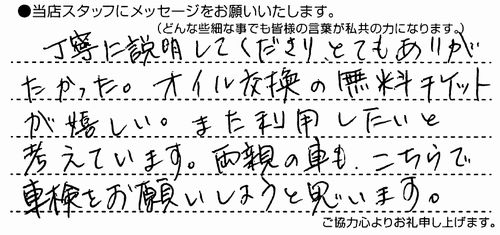 ●当店スタッフにメッセージをお願いいたします。
(どんな些細な事でも皆様の言葉が私共の力になります。)
丁寧に説明してくださり、とてもありが
たかった。オイル交換の無料チケット
が嬉しい。また利用したいと
考えています。両親の車も、こちらで
車検をお願いしようと思います。
ご協力心よりお礼申し上げます。